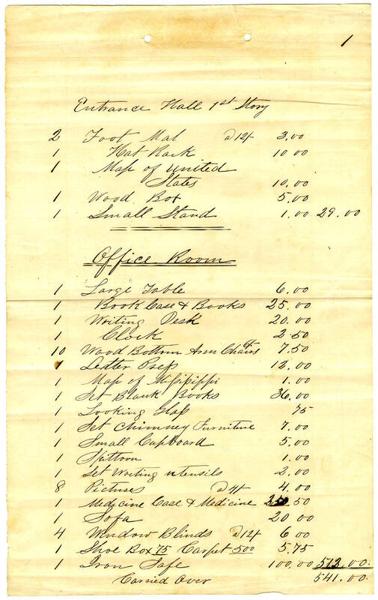 1
Entrance Hall 1st Story
2 Foot Mat 3.00
1 Hat Rack 10.00
1 Map of United
States 10.00
1 Wood Box 5.00
1 Small Stand 1.00 29.00
Office Room
1 Large Table 6.00
1 Book Case & Books 25.00
1 Writing Desk 20.00
1 Clock 2.50
10 Wood Bottom Arm Chairs 7.50
1 Letter Press
1 Map of Mississippi 1.00
1 Set Blank Books 36.00
1 Looking Glass 75
1 Set Chimney Furniture 7.00
1 Small Cupboard 5.00
1 Spittoon 1.00
1 Set Writing utensils 2.00
8 Pictures 4.00
1 Medicine Case & Medicine
1 Sofa 20.00
4 Window Blinds 6.00
1 Shoe Box 75 Carpet 5.00 5.75
1 Iron Safe 100.00
Carried Over 541.00